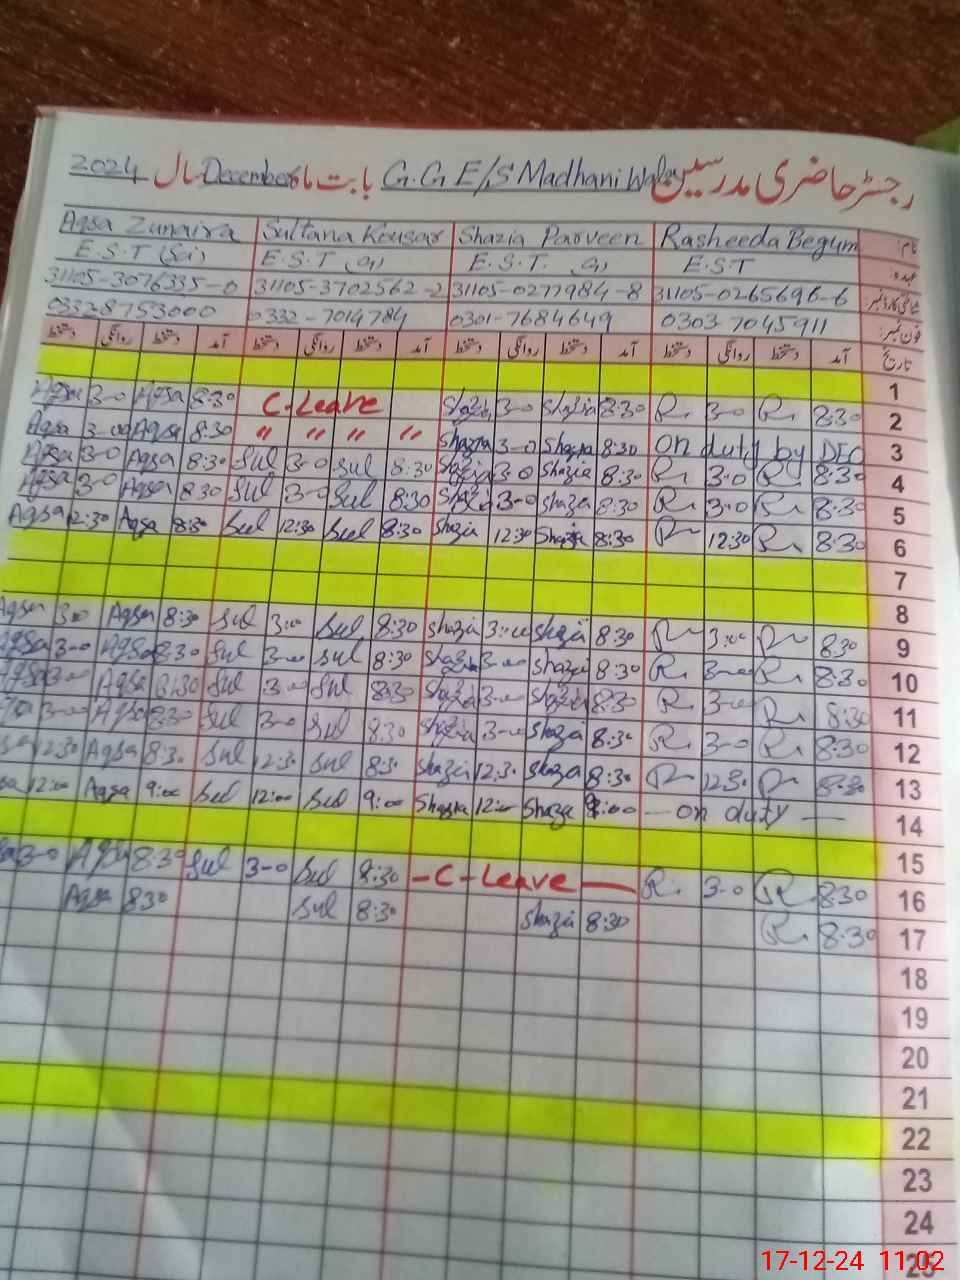 رجسٹر حاضری مدرسین G.G E/S Madhani Wala بابت ماہ December سال 2024
نام: Rasheeda Begum Shazia Parveen Sultana Kousar Aqsa Zunaira
عہدہ: E.S.T E.S.T. (G) E.S.T (G) E.S.T (Sci)
شناختی کارڈ نمبر 31105-0265696-6 31105-0277984-8 31105-3702562-2 31105-3076335-0
فون نمبر: 0303-7045911 0301-7684649 0332-7014784 03328753000
تاریخ آمد دستخط روانگی دستخط آمد دستخط روانگی دستخط آمد دستخط روانگی دستخط آمد دستخط روانگی دستخط
1
2 8:30 R 3-0 R 8:30 Shazia 3-0 Shazia C-Leave 8:30 Aqsa 3-0 Aqsa
3 on duty by DEO 8:30 Shazia 3-0 Shazia " " " " 8:30 Aqsa 3-00 Aqsa
4 8:30 R 3-0 R 8:30 Shazia 3-0 Shazia 8:30 Sul 3-0 Sul 8:30 Aqsa 3-0 Aqsa
5 8:30 R 3-0 R 8:30 Shazia 3-0 Shazia 8:30 Sul 3-0 Sul 8:30 Aqsa 3-0 Aqsa
6 8:30 R 12:30 R 8:30 Shazia 12:30 Shazia 8:30 Sul 12:30 Sul 8:30 Aqsa 12:30 Aqsa
7
8
9 8:30 R 3:00 R 8:30 Shazia 3:00 Shazia 8:30 Sul 3:00 Sul 8:30 Aqsa 3:00 Aqsa
10 8:30 R 3-00 R 8:30 Shazia 3-00 Shazia 8:30 Sul 3-00 Sul 8:30 Aqsa 3-00 Aqsa
11 8:30 R 3-00 R 8:30 Shazia 3-00 Shazia 8:30 Sul 3-00 Sul 8:30 Aqsa 3-00 Aqsa
12 8:30 R 3-0 R 8:30 Shazia 3-00 Shazia 8:30 Sul 3-0 Sul 8:30 Aqsa 3-00
13 8:30 R 12:30 R 8:30 Shazia 12:30 Shazia 8:30 Sul 12:30 Sul 8:30 Aqsa 12:30
14 — on duty — 9:00 Shazia 12:00 Shazia 9:00 Sul 12:00 Sul 9:00 Aqsa 12:00
15
16 8:30 R 3-0 R -C-Leave — 8:30 Sul 3-0 Sul 8:30 Aqsa 3-0
17 8:30 R 8:30 Shazia 8:30 Sul 8:30 Aqsa
18
19
20
21
22
23
24
25
17-12-24 11:02